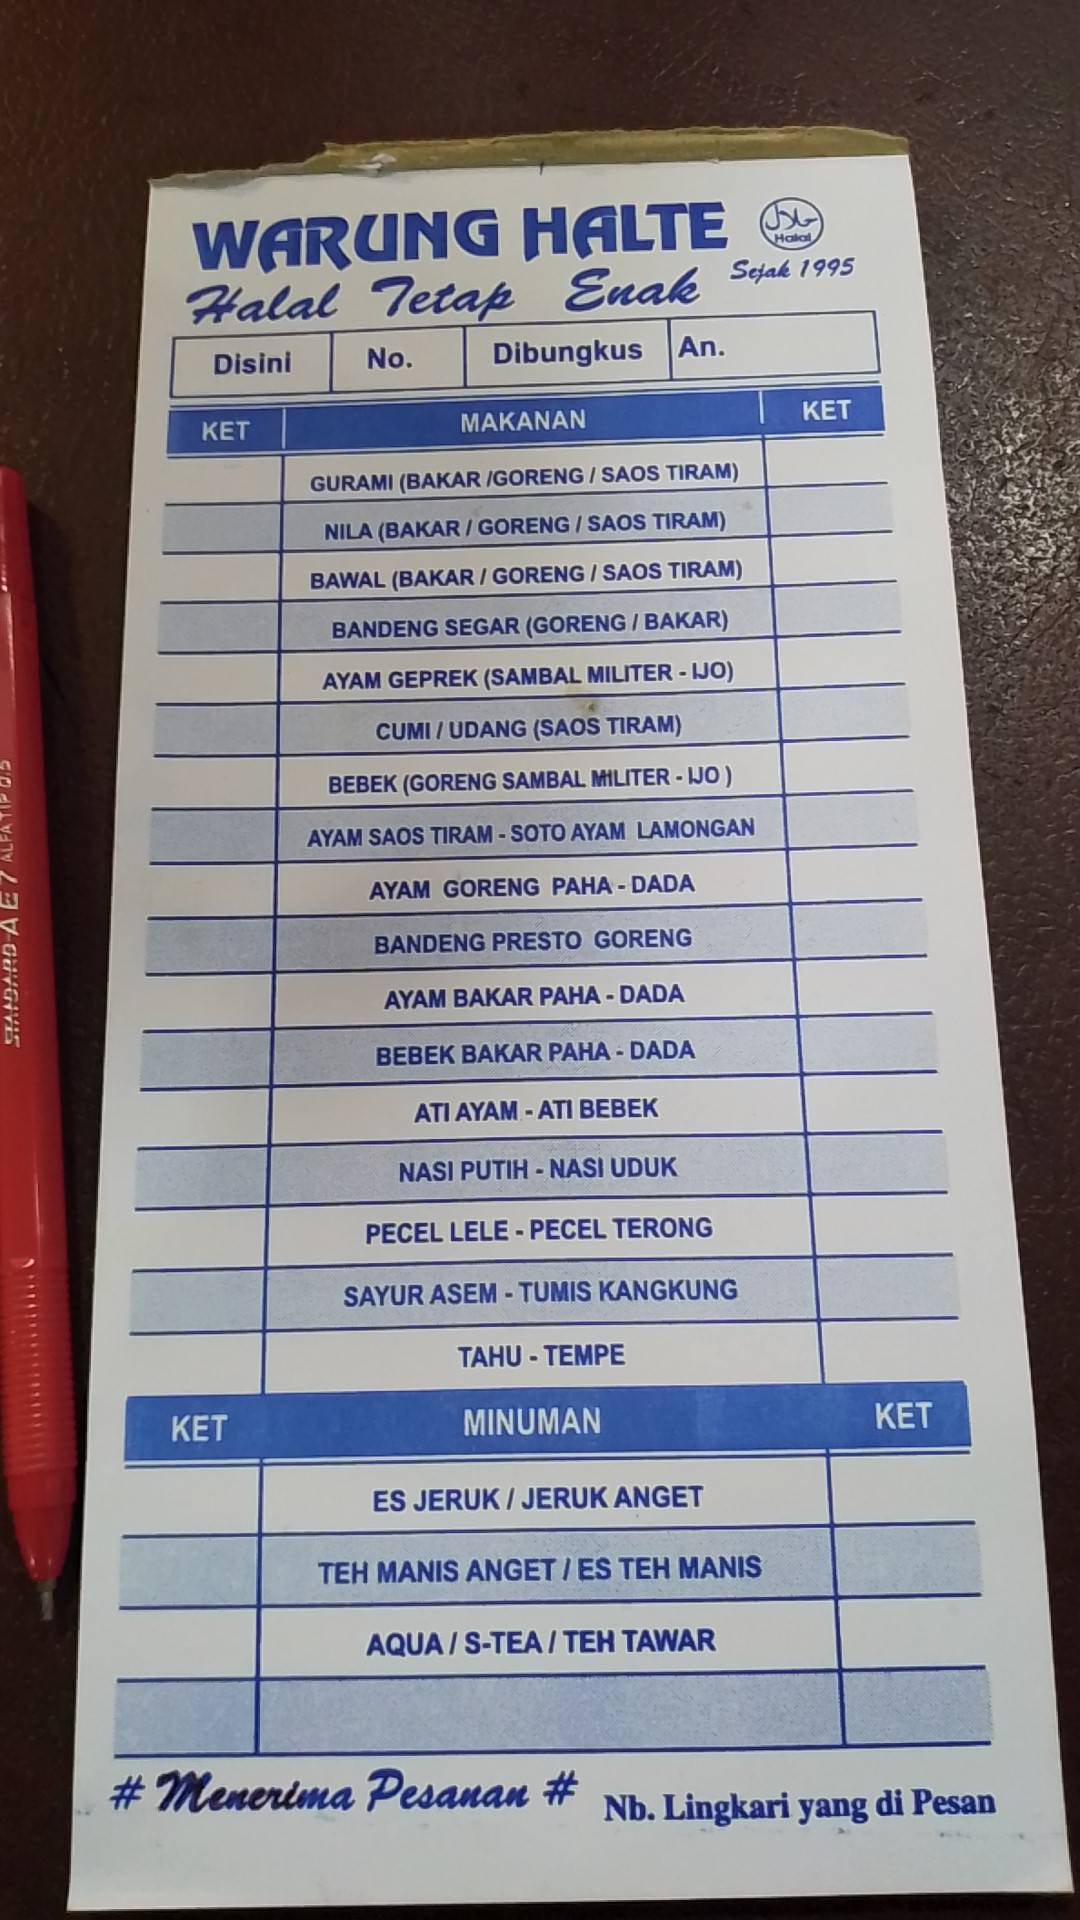 WARUNG HALTE
حلال
Halal
Halal Tetap Enak
Sejak 1995
Disini No. Dibungkus An.
KET MAKANAN KET
GURAMI (BAKAR /GORENG / SAOS TIRAM)
NILA (BAKAR / GORENG / SAOS TIRAM)
BAWAL (BAKAR / GORENG / SAOS TIRAM)
BANDENG SEGAR (GORENG / BAKAR)
AYAM GEPREK (SAMBAL MILITER - IJO)
CUMI / UDANG (SAOS TIRAM)
BEBEK (GORENG SAMBAL MILITER - IJO )
AYAM SAOS TIRAM - SOTO AYAM LAMONGAN
AYAM GORENG PAHA - DADA
BANDENG PRESTO GORENG
AYAM BAKAR PAHA - DADA
BEBEK BAKAR PAHA - DADA
ATI AYAM - ATI BEBEK
NASI PUTIH - NASI UDUK
PECEL LELE - PECEL TERONG
SAYUR ASEM - TUMIS KANGKUNG
TAHU - TEMPE
KET MINUMAN KET
ES JERUK / JERUK ANGET
TEH MANIS ANGET / ES TEH MANIS
AQUA / S-TEA / TEH TAWAR
# Menerima Pesanan #
Nb. Lingkari yang di Pesan
STANDARD AE7 ALFATIP 0.5